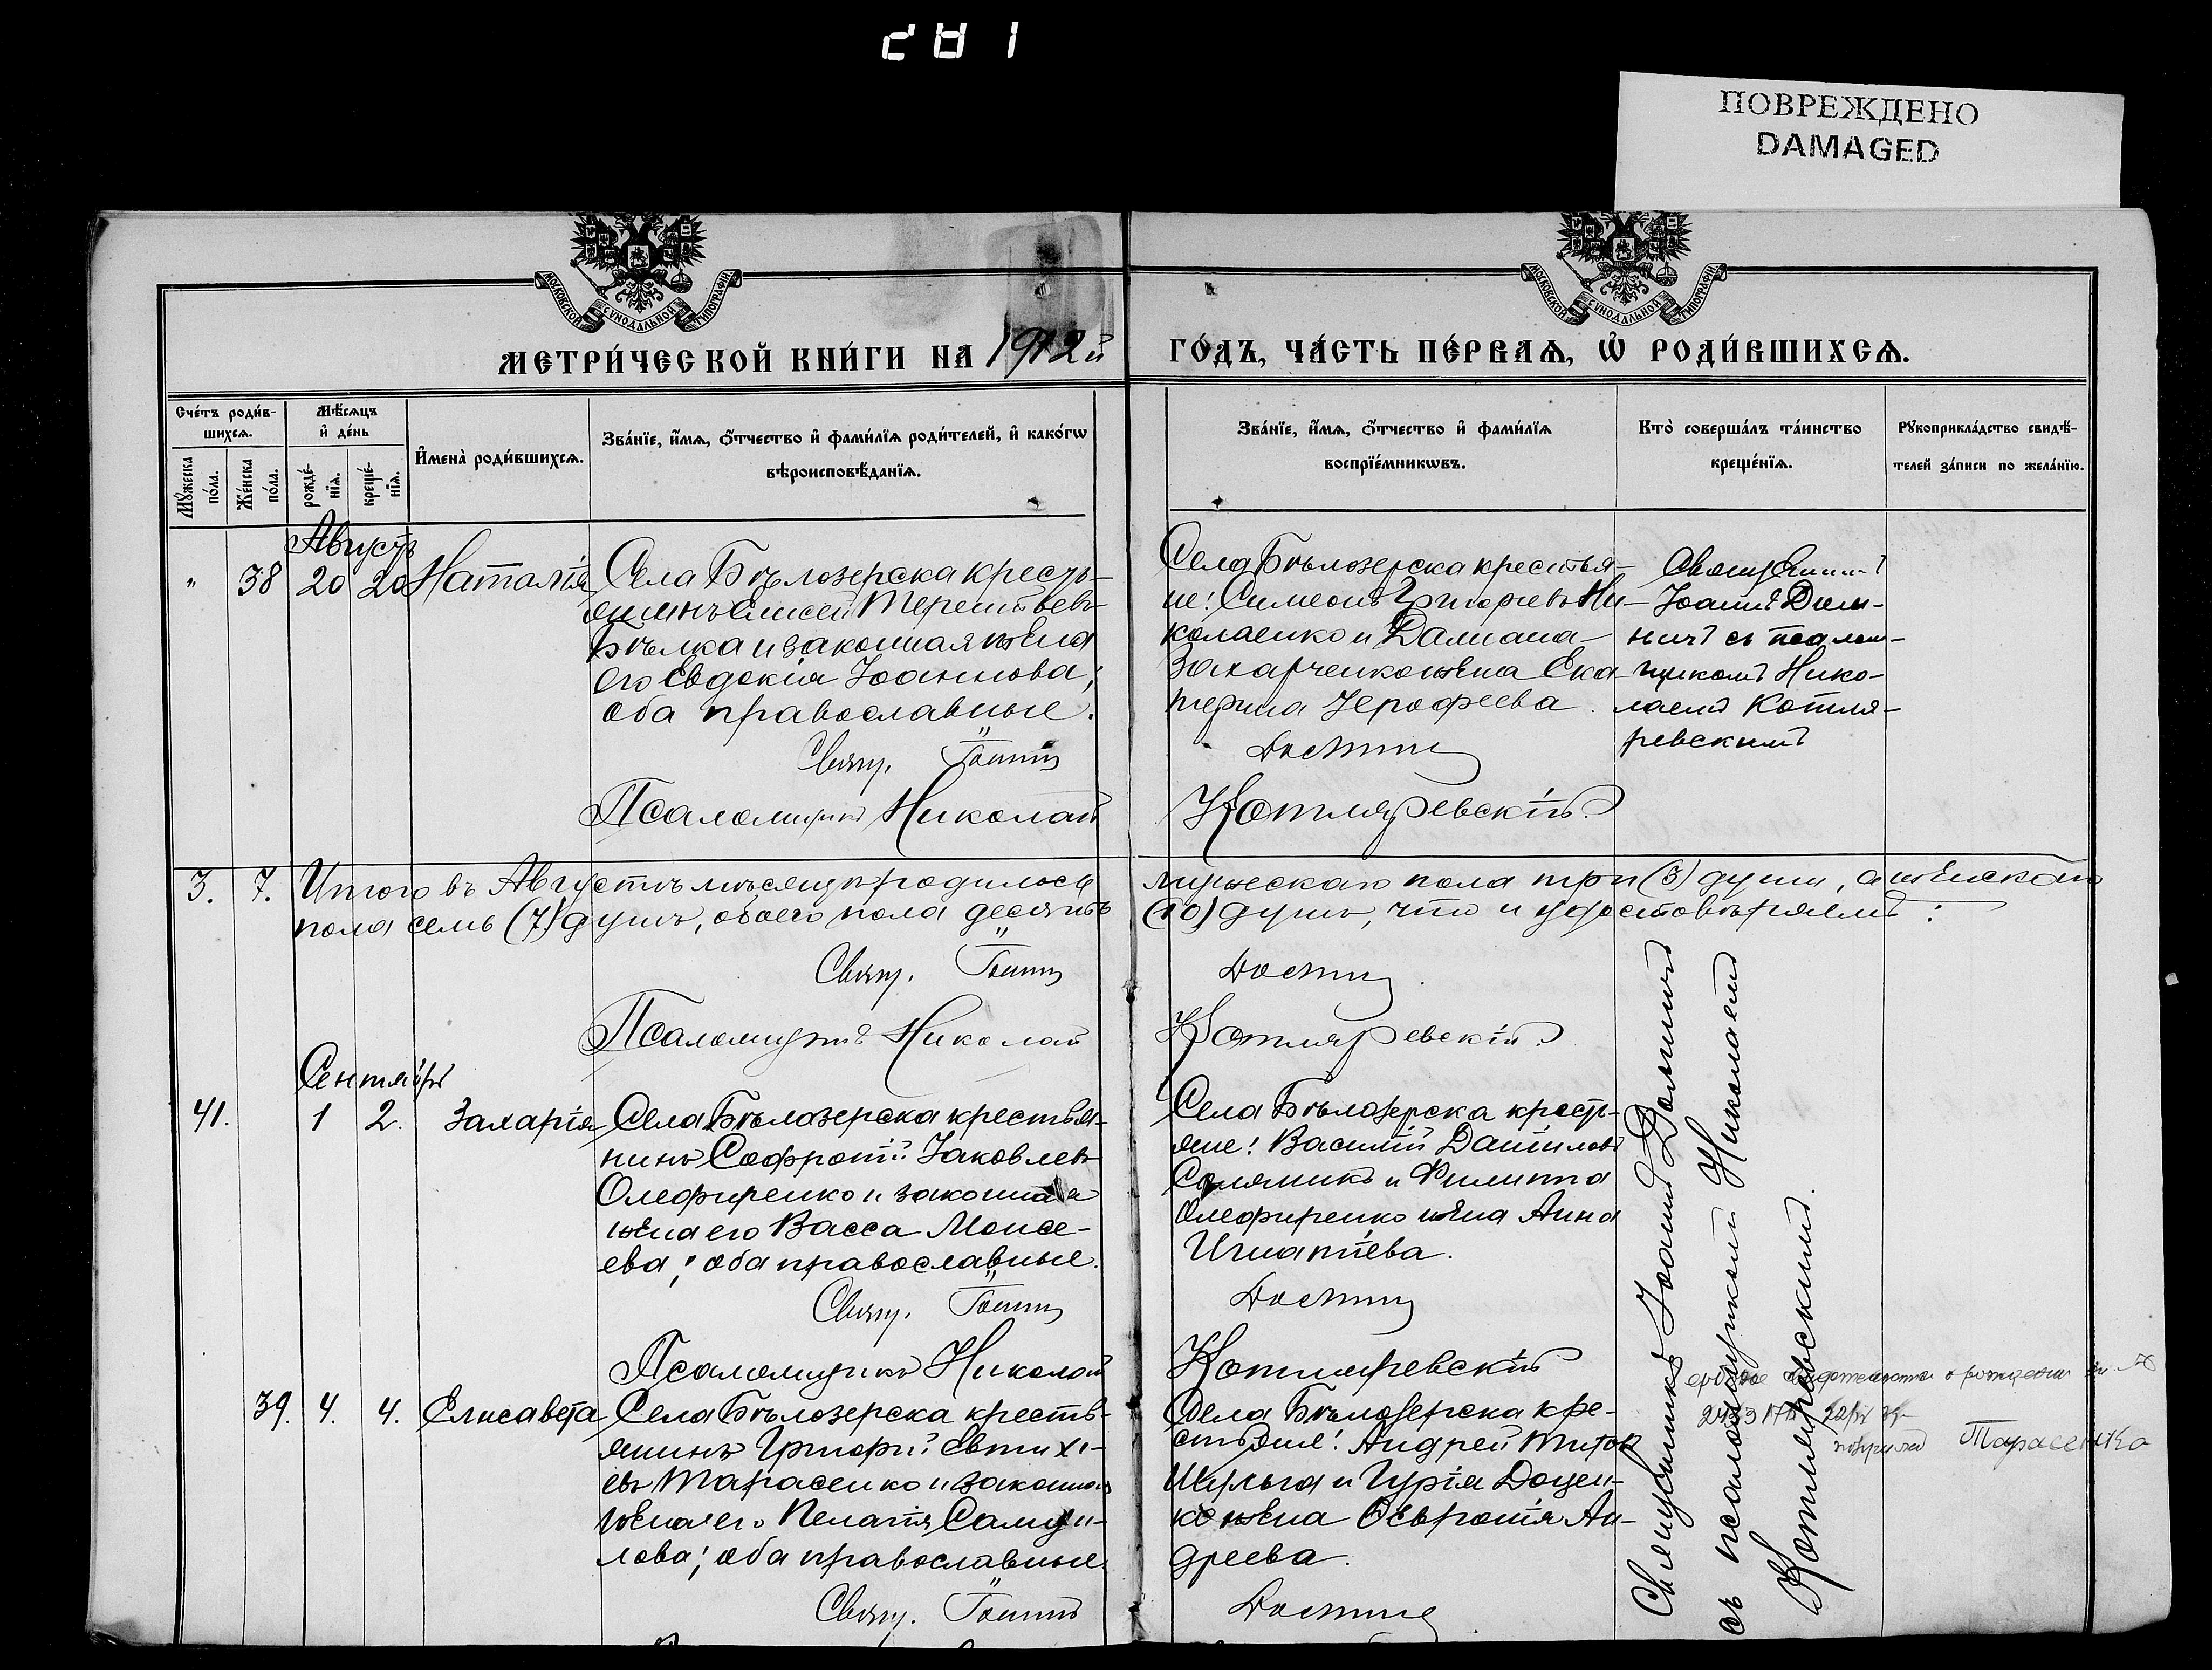 281
ПОВРЕЖДЕНО
DAMAGED
МОСКОВСКОЙ СѴНОДАЛЬНОЙ ТИПОГРАФІИ
МОСКОВСКОЙ СѴНОДАЛЬНОЙ ТИПОГРАФІИ
МЕТРИ́ЧЕСКОЙ КНИ́ГИ НА 1912й
ГО́ДЪ, ЧА́СТЬ ПЕ́РВАѦ, Ѡ҆ РОДИ́ВШИХСѦ.
Сче́тъ роди́в-
шихсѧ.
Мꙋ́жеска по́ла.
Же́нска по́ла.
Мѣ́сѧцъ
и҆ де́нь
рожде́-
нїѧ.
креще́-
нїѧ.
И҆мена̀ роди́вшихсѧ.
Зва́нїе, и҆́мѧ, ѻ҆́тчество и҆ фами́лїѧ роди́телей, и҆ како́гѡ
вѣроисповѣ́данїѧ.
Зва́нїе, и҆́мѧ, ѻ҆́тчество и҆ фами́лїѧ
воспрїе́мникѡвъ.
Кто̀ соверша́лъ та́инство
креще́нїѧ.
Рꙋкоприкла́дство свидѣ́-
телей за́писи по жела́нїю.
Августъ
" 38 20 20 Наталія
Села Бѣлозерска кресть-
янинъ Елисей Терентьевъ
Бѣлка и законная жена
его Евдокія Іоаннова;
оба православные.
Свящ. Іоаннъ
Псаломщикъ Николай
Села Бѣлозерска крестья-
не: Симеонъ Григорьевъ Ни-
колаенко и Даміана
Захарченко жена Ека
терина Іерофеева.
Котляревскій
Священникъ
Іоаннъ
съ псалом-
щикомъ Нико-
лаемъ Котля-
ревскимъ
3. 7. Итого въ Августѣ мѣсяцѣ родилось
мужескаго пола три (3) души, а женскаго
пола семь (7) душъ, обоего пола десять
(10) душъ, что и удостовѣряемъ:
Свящ. Іоаннъ
Псаломщикъ Николай
Котляревскій
Сентябрь
41. 1 2. Захарія
Села Бѣлозерска крестья-
нинъ Софроній Іаковлевъ
Олефиренко и законная
жена его Васса Моисе-
ева; оба православные.
Свящ. Іоаннъ
Псаломщикъ Николай
Села Бѣлозерска кресть-
яне: Василій Даниловъ
Соляникъ и Филиппа
Олефиренко жена Анна
Игнатіева.
Котляревскій
39. 4. 4. Елисавета
Села Бѣлозерска кресть-
янинъ Григорій Евтихі-
евъ Тарасенко и законная
жена его Пелагія Самуи-
лова; оба православные.
Свящ. Іоаннъ
Села Бѣлозерска кре-
стьяне: Андрей Титовъ
Шульга и Гурія Доцен-
ко жена Евфросинія Ан-
дреева.
Священникъ Іоаннъ
съ псаломщикомъ Николаемъ
Котляревскимъ.
Тарасенко